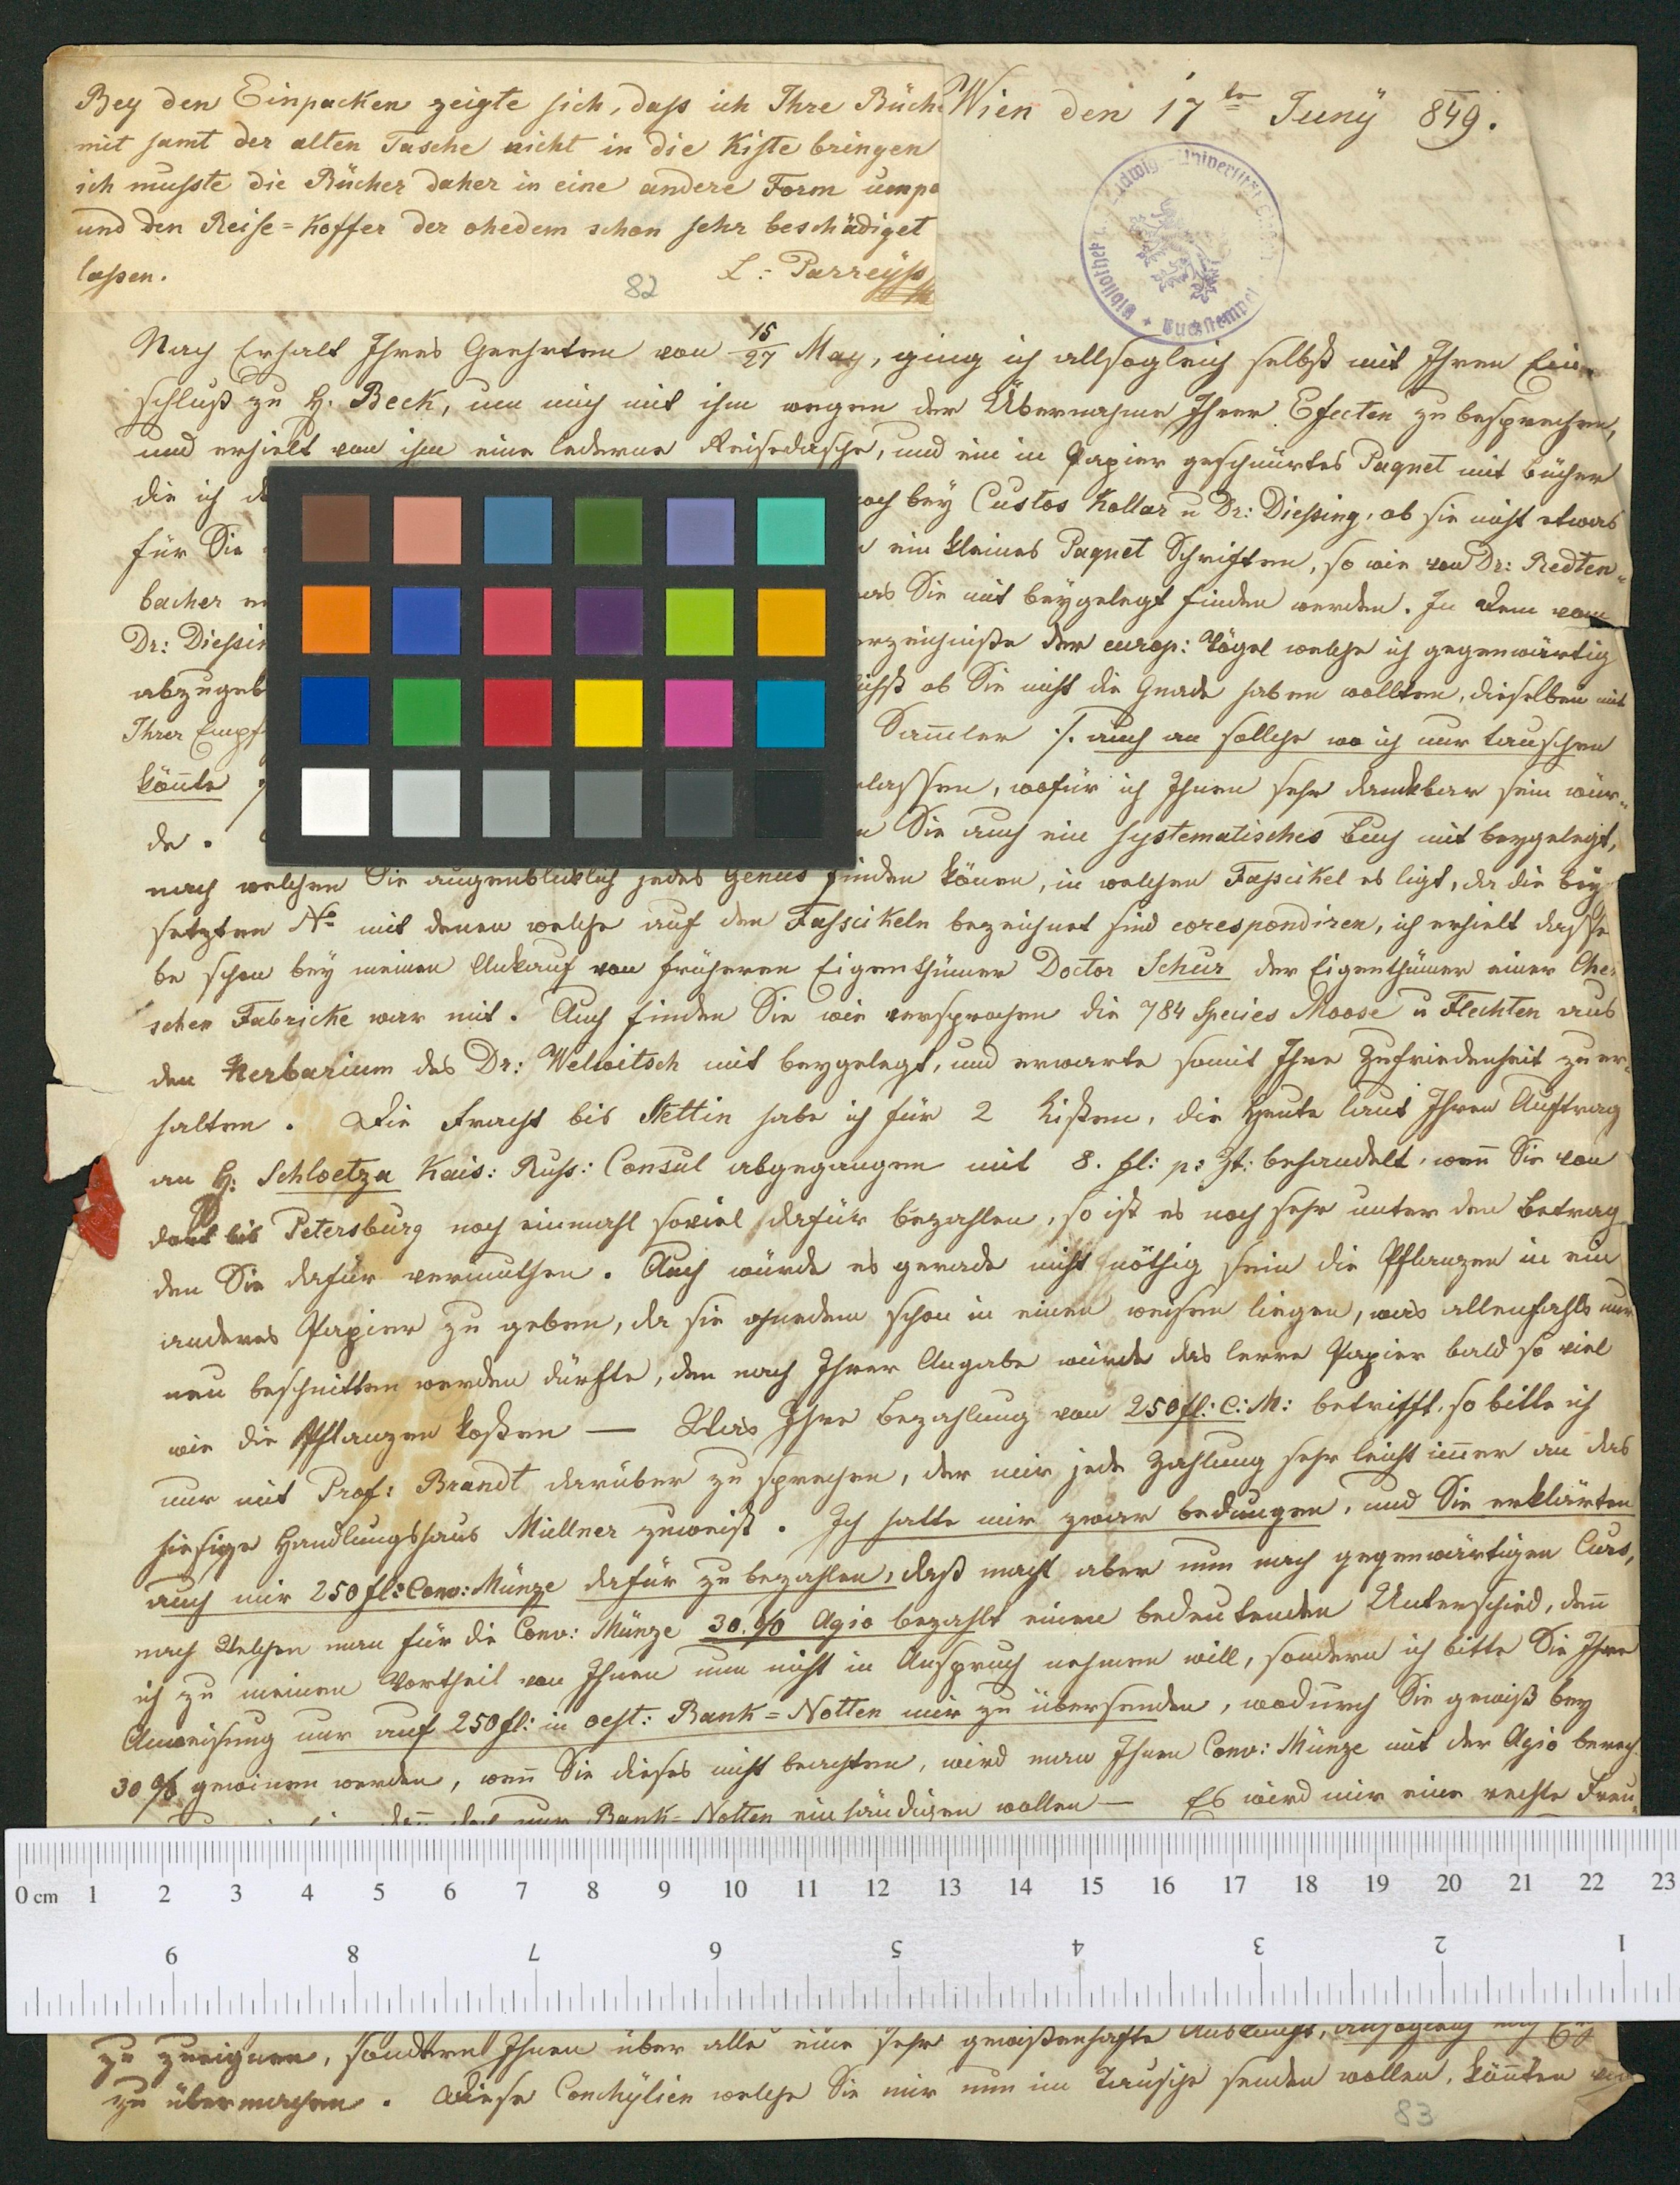 Bey den Einpacken zeigte sich, daß ich Ihre Büch
mit samt der alten Tasche nicht in die Kiste bringen
ich mußte die Bücher daher in eine andere Form umpa
und den Reise=Koffer der ohedem schon sehr beschädiget
laßen.
L: Parreyß
82
Wien den 17te Juny 849.
Ludwigs-Universität
Bibliothek
Nach Erhalt Ihres Geehrten von 15/27 May, ging ich allsogleich selbst mit Ihren Ein-
schluß zu H. Beck, um mich mit ihm wegen der Übernahme Ihrer Efecten zu besprechen,
und erhielt von ihm eine lederne Reisedasche, und ein in Papier geschnürtes Paquet mit Bücher
die ich d
och bey Custos Kollar u Dr: Dießing, ob sie nicht etwas
für Sie
ein kleines Paquet Schriften, so wie von Dr: Redten=
bacher
as Sie mit beygelegt finden werden. In dem vom
Dr: Dießin
erzeichniße der europ: Vögel welche ich gegenwärtig
abzugeb
ichst ob Sie nicht die Gnade haben wollten, dieselben mit
Ihrer Empf
Sam̄ler /. auch an solche wo ich nur tauschen
kön̄te
lassen, wofür ich Ihnen sehr dankbar sein wür=
de.
Sie auch ein systematisches Buch mit beygelegt,
nach welchen Sie augenblicklich jedes Genus finden könen, in welchen Faßcikel es ligt, da die bey
setzten No mit denen welche auf den Faßcikeln bezeichnet sind corespondiren, ich erhielt dasse
be schon bey meinen Ankauf von früheren Eigenthümer Doctor Schur der Eigenthümer einer Che=
schen Fabricke war mit. Auch finden Sie wie versprochen die 784 Species Moose u Flechten aus
den Herbarium des Dr: Welwitsch mit beygelegt, und erwarte somit Ihre Zufriedenheit zu er=
halten. Die Fracht bis Stettin habe ich für 2 Kisten, die heute laut Ihren Auftrag
an H: Schloetza Kais: Ruß: Consul abgegangen mit 8. fl: p: Zt: behandelt, wen̄ Sie von
dort bis Petersburg noch einmahl soviel dafür bezahlen, so ist es noch sehr unter den Betrag
den Sie dafür vermuthen. Auch würde es gerade nicht nöthig sein die Pflanzen in ein
anderes Papier zu geben, da sie ohnedem schon in einen weißen liegen, was allenfahls nur
neu beschnitten werden dürfte, den nach Ihrer Angabe würde das leere Papier bald so viel
wie die Pflanzen kosten — Was Ihre Bezahlung von 250 fl: C: M: betrifft, so bitte ich
nur mit Prof: Brandt darüber zu sprechen, der mir jede Zahlung sehr leicht im̄er an das
hiesige Handlungshaus Müllner zuweist. Ich hatte mir zwar bedungen, und Sie erklärten
auch mir 250 fl: Conv: Münze dafür zu bezahlen, daß macht aber nun nach gegenwärtigen Curs,
nach Welchen man für die Conv: Münze 30. % Agio bezahlt einen bedeutenden Unterschied, den̄
ich zu meinen Vortheil von Ihnen nun nicht in Anspruch nehmen will, sondern ich bitte Sie Ihre
Anweisung nur auf 250 fl: in oest: Bank=Notten mir zu übersenden, wodurch Sie gewiß bey
30 % gewinen werden, wen̄ Sie dieses nicht beachten, wird man Ihnen Conv: Münze mit der Agio berech
nur Bank=Notten einhändigen wollen — Es wird mir eine rechte Freu=
0 cm 1 2 3 4 5 6 7 8 9 10 11 12 13 14 15 16 17 18 19 20 21 22 23
9 8 7 6 5 4 3 2 1
zu zueignen, sondern Ihnen über alle eine sehr gewißenhafte Auskunft,
zu übermachen. Diese Conchÿlien welche Sie mir nun im Tausche senden wollen, kön̄ten
83